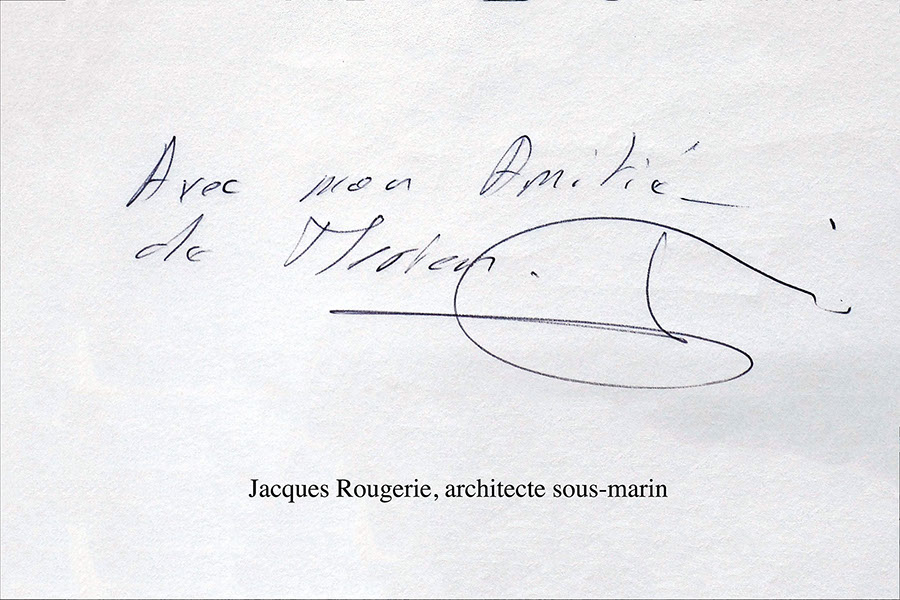 Avec mon Amitié
de
Jacques Rougerie, architecte sous-marin